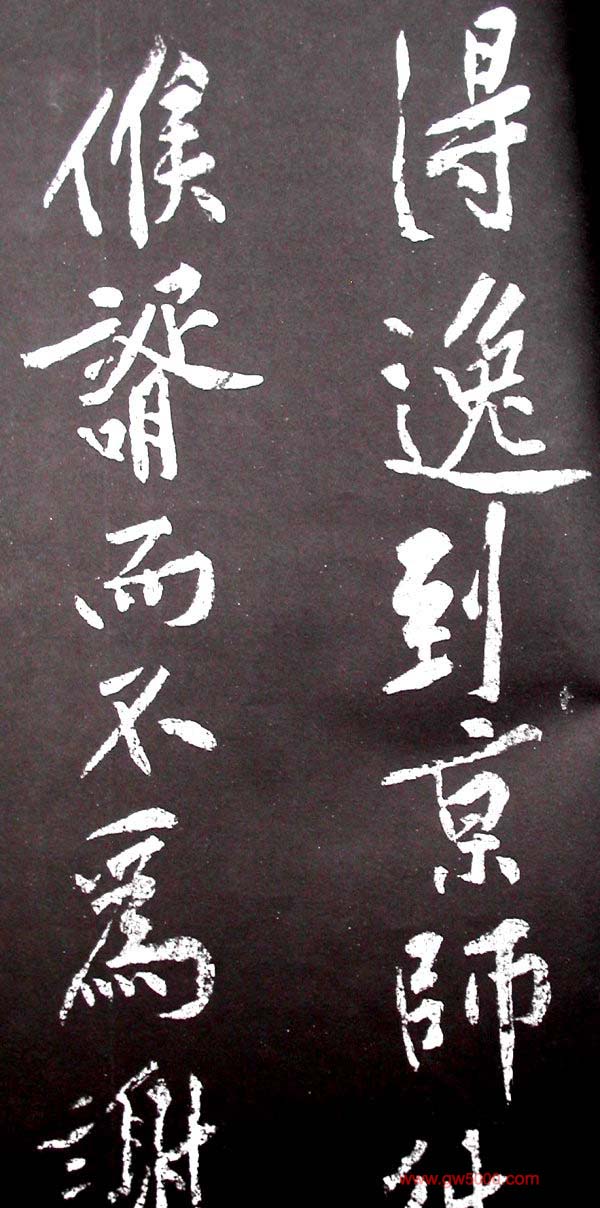 得逸到京師
候諝而不爲謝
www.gw5000.com